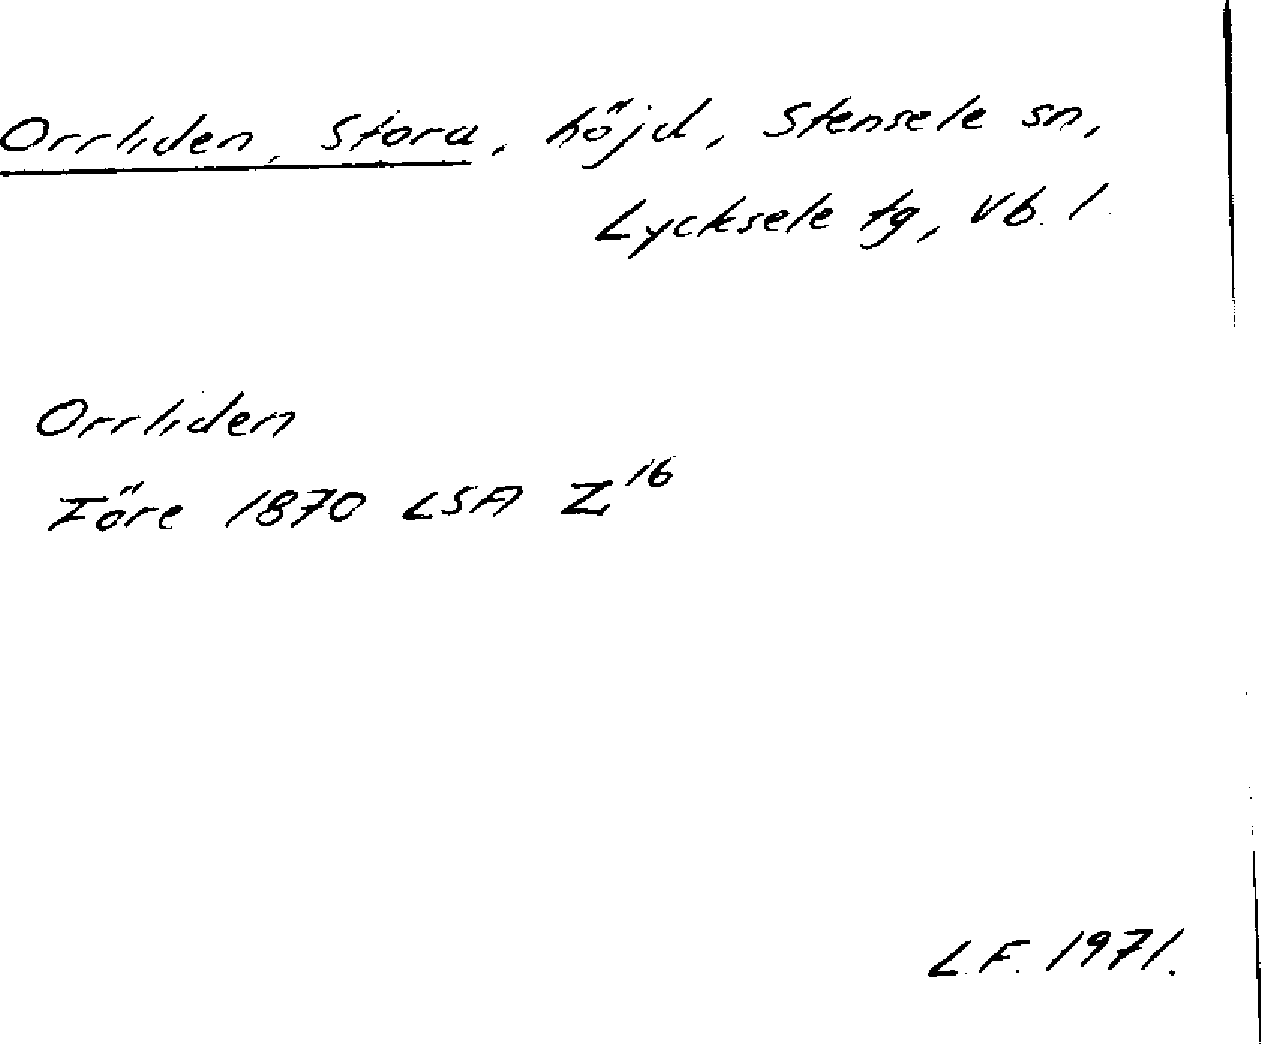 Orrliden, Stora, höjd, Stensele sn,
Lycksele tg, Vb. l.
Orrliden
Före 1870 LSA Z16
L.F. 1971.